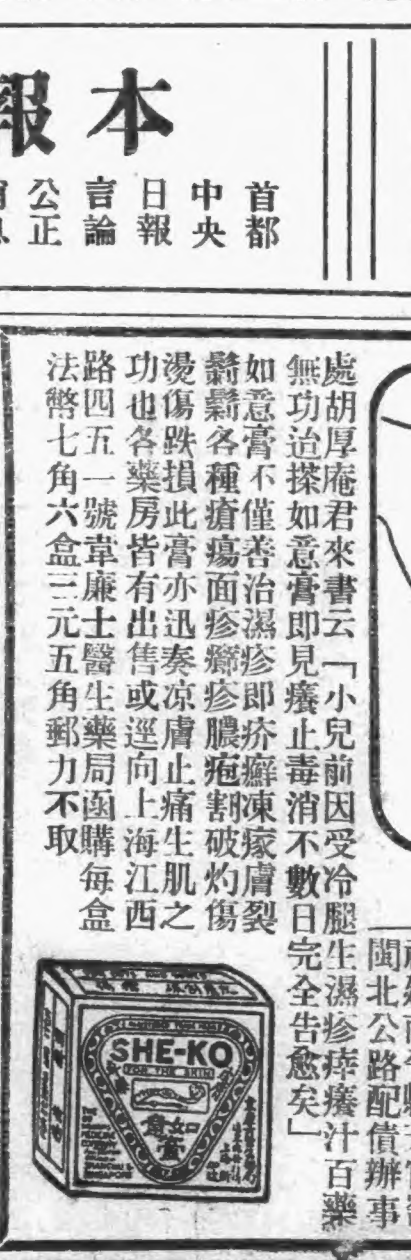 本報
首都
中央
日報
言論
公正
閩北公路配債辦事
處胡厚庵君來書云「小兒前因受冷腿生濕疹痒癢汁百藥
無功迨搽如意膏即見癢止毒消不數日完全告愈矣」
如意膏不僅善治濕疹即疥癬凍瘃膚裂
各種瘡瘍面疹癬疹膿疱割破灼傷
燙傷跌損此膏亦迅奏凉膚止痛生肌之
功也各藥房皆有出售或逕向上海江西
路四五一號韋廉士醫生藥局函購每盒
法幣七角六盒三元五角郵力不取
SHE-KO
FOR THE SKIN
如意膏